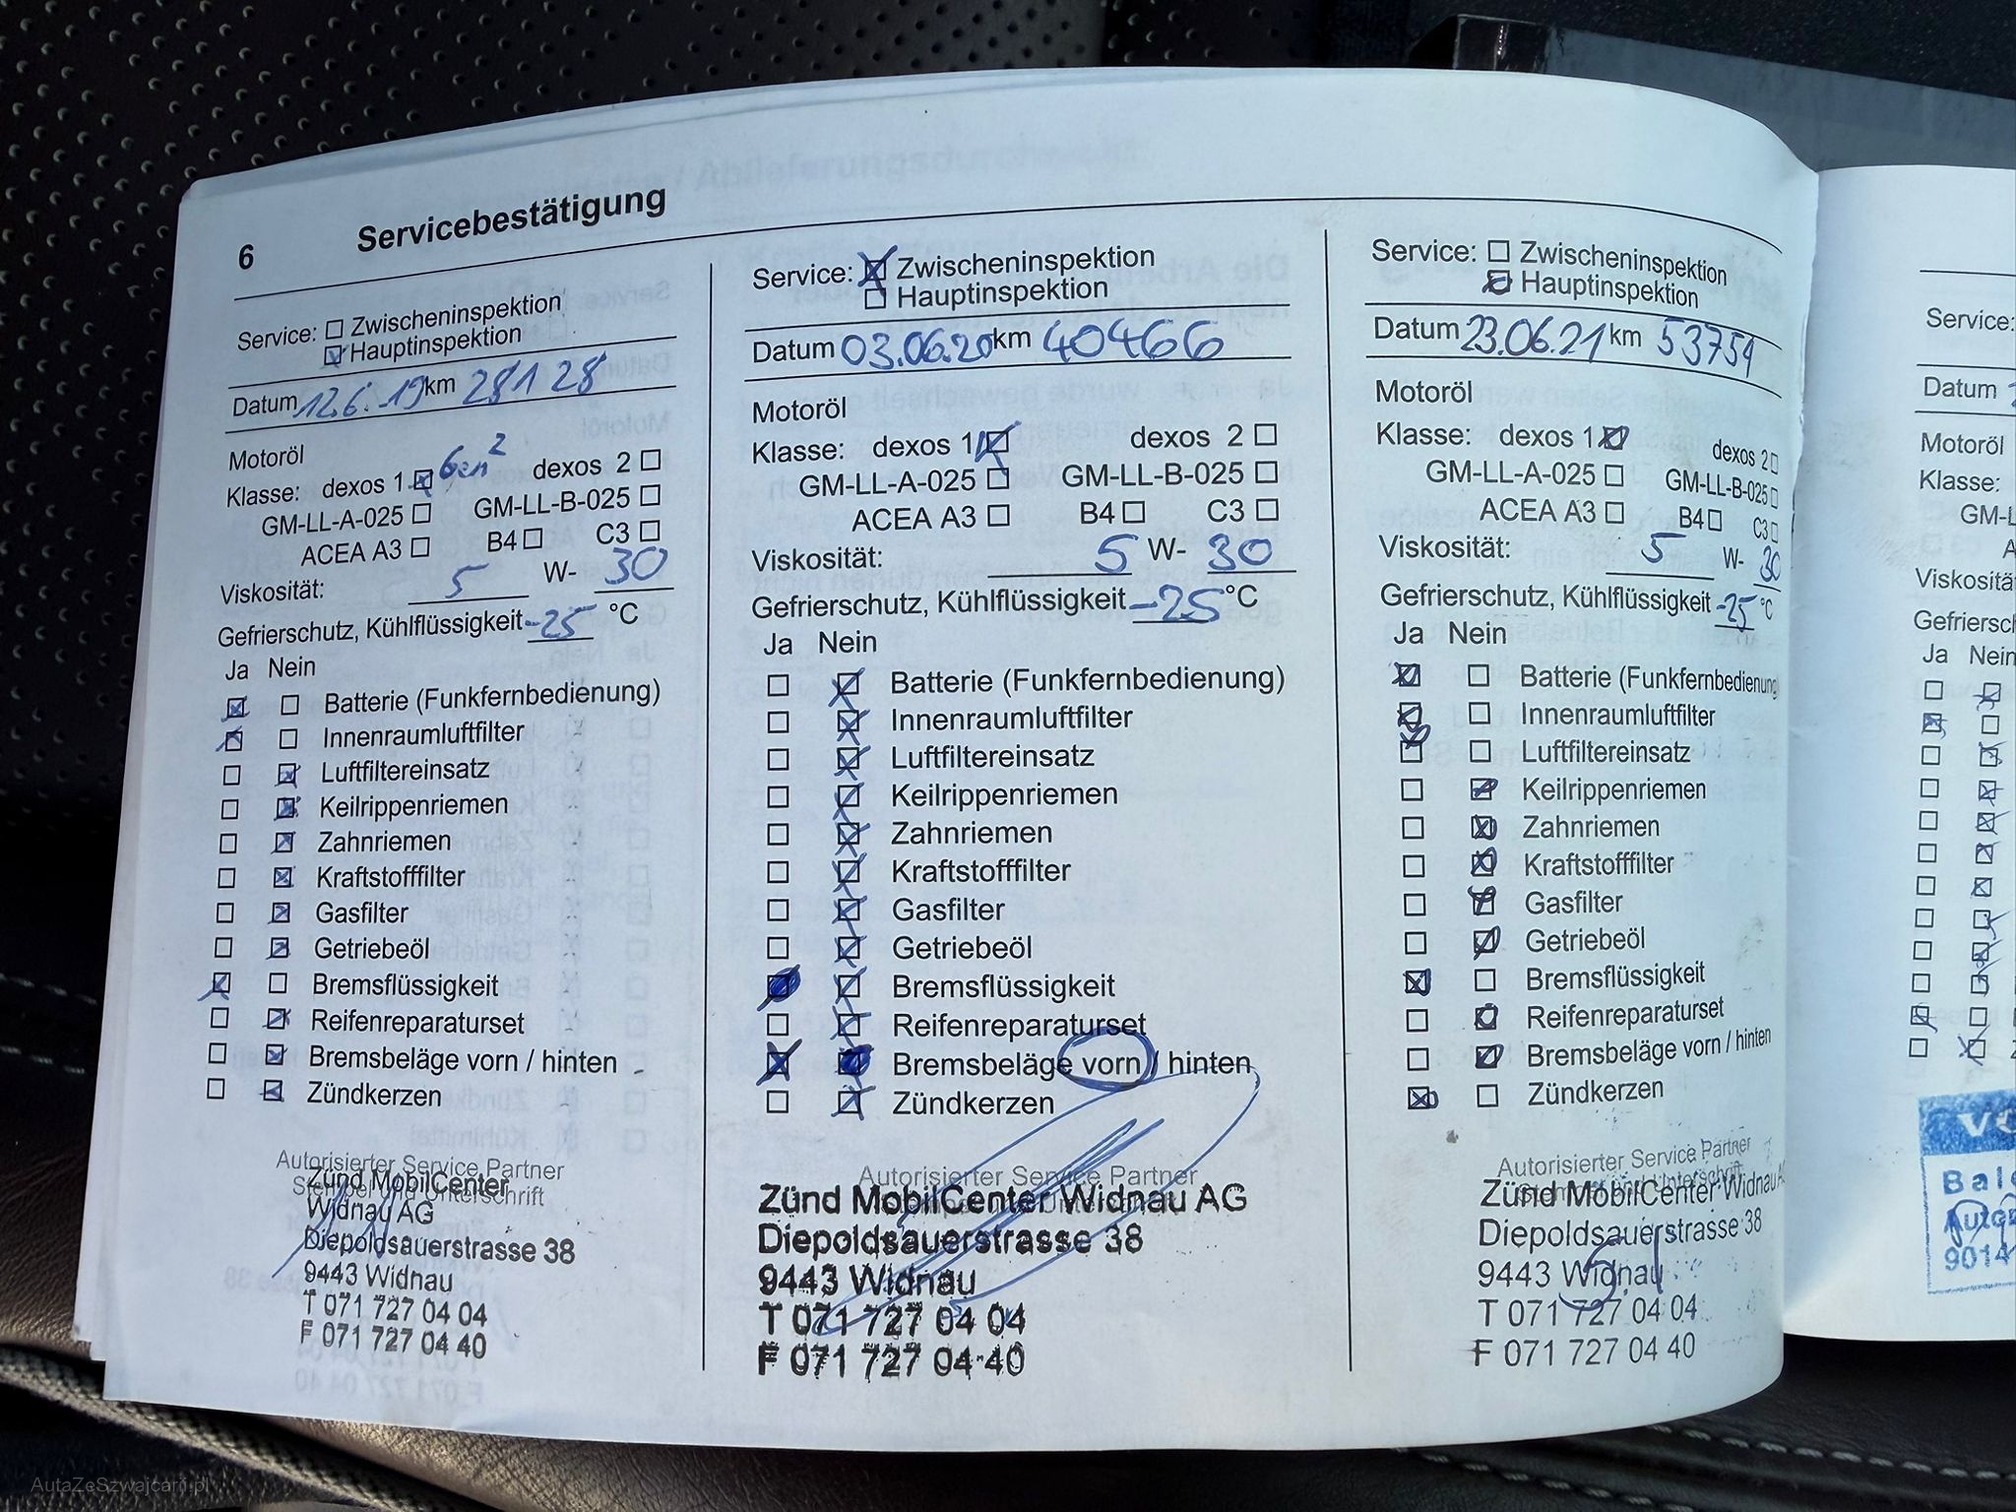 6 Servicebestätigung
Service: Zwischeninspektion
Hauptinspektion
Datum 12.6.19 km 28128
Motoröl
Klasse: dexos 1 Gen 2 dexos 2
GM-LL-A-025 GM-LL-B-025
ACEA A3 B4 C3
Viskosität: 5 W- 30
Gefrierschutz, Kühlflüssigkeit -25 °C
Ja Nein
Batterie (Funkfernbedienung)
Innenraumluftfilter
Luftfiltereinsatz
Keilrippenriemen
Zahnriemen
Kraftstofffilter
Gasfilter
Getriebeöl
Bremsflüssigkeit
Reifenreparaturset
Bremsbeläge vorn / hinten
Zündkerzen
Autorisierter Service Partner
Stempel und Unterschrift
Zünd MobilCenter
Widnau AG
Diepoldsauerstrasse 38
9443 Widnau
T 071 727 04 04
F 071 727 04 40
Service: Zwischeninspektion
Hauptinspektion
Datum 03.06.20 km 40466
Motoröl
Klasse: dexos 1 dexos 2
GM-LL-A-025 GM-LL-B-025
ACEA A3 B4 C3
Viskosität: 5 W- 30
Gefrierschutz, Kühlflüssigkeit -25 °C
Ja Nein
Batterie (Funkfernbedienung)
Innenraumluftfilter
Luftfiltereinsatz
Keilrippenriemen
Zahnriemen
Kraftstofffilter
Gasfilter
Getriebeöl
Bremsflüssigkeit
Reifenreparaturset
Bremsbeläge vorn / hinten
Zündkerzen
Autorisierter Service Partner
Zünd MobilCenter Widnau AG
Diepoldsauerstrasse 38
9443 Widnau
T 071 727 04 04
F 071 727 04 40
Service: Zwischeninspektion
Hauptinspektion
Datum 23.06.21 km 53759
Motoröl
Klasse: dexos 1 dexos 2
GM-LL-A-025 GM-LL-B-025
ACEA A3 B4 C3
Viskosität: 5 W- 30
Gefrierschutz, Kühlflüssigkeit -25 °C
Ja Nein
Batterie (Funkfernbedienung)
Innenraumluftfilter
Luftfiltereinsatz
Keilrippenriemen
Zahnriemen
Kraftstofffilter
Gasfilter
Getriebeöl
Bremsflüssigkeit
Reifenreparaturset
Bremsbeläge vorn / hinten
Zündkerzen
Autorisierter Service Partner
Zünd MobilCenter Widnau
Diepoldsauerstrasse 38
9443 Widnau
T 071 727 04 04
F 071 727 04 40
Service:
Datum
Motoröl
Klasse:
GM-L
A
Viskositä
Gefriersch
Ja Nein
9014
AutaZeSzwajcarii.pl